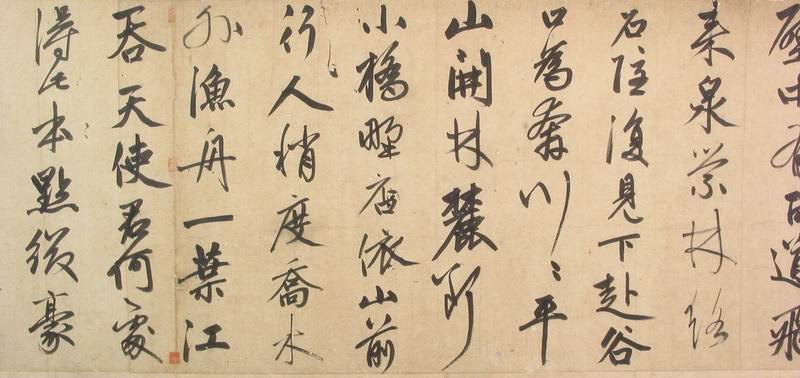 中有百道飛
來泉縈林絡
石隱復見下赴谷
口為奔川〻平
山開林麓斷
小橋野店依山前
行人稍度喬木
外漁舟一葉江
吞天使君何處
得此本點綴豪